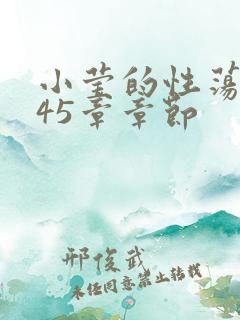 小莹的性荡
45章章节
邢俊武
未经同意禁止转载